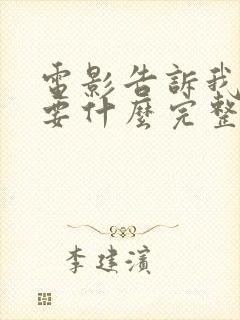 電影告訴我
要什麼完整
李建濱